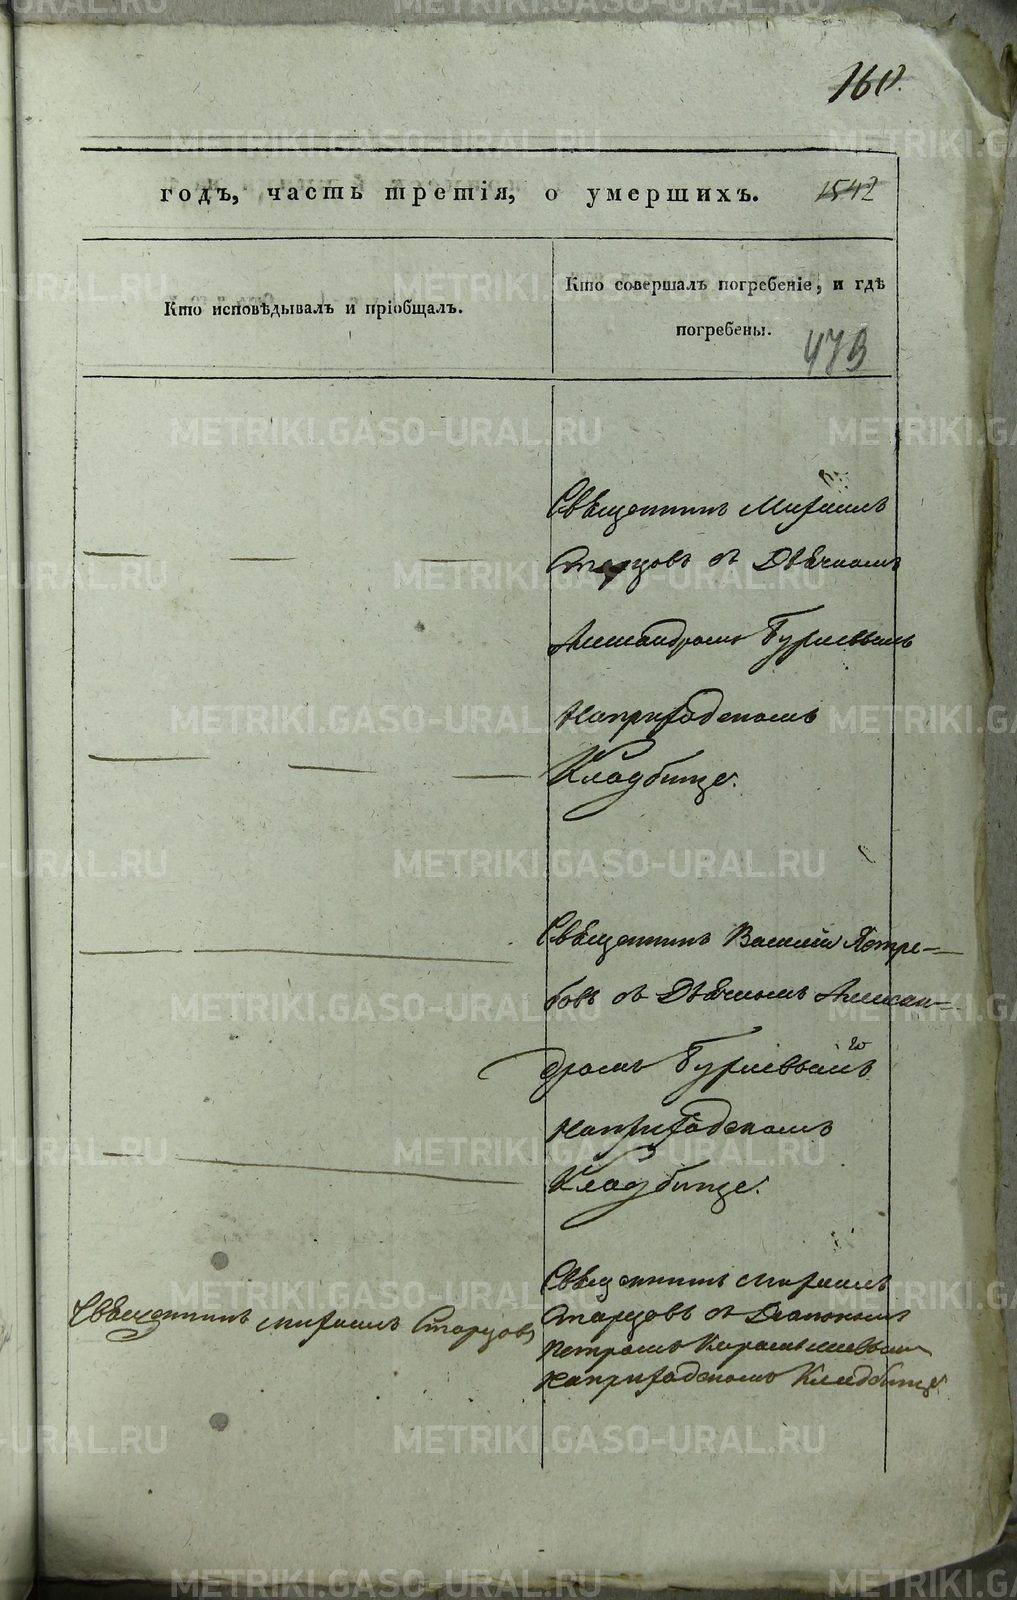 160.
годъ, часть третія, о умершихъ. 1542
Кто исповѣдывалъ и пріобщалъ.
Кто совершалъ погребеніе, и гдѣ
погребены.
473
Священникъ Михаилъ
Старцовъ съ Дьячкомъ
Александромъ
Наприходскомъ
Кладбище.
Священникъ Василій Ястре-
бовъ съ Дьячкомъ Алексан-
дромъ
Наприходскомъ
Кладбище.
Священникъ Михаилъ Старцовъ
Священникъ Михаилъ
Старцовъ съ Дьякономъ
Петромъ
Наприходскомъ Кладбище
METRIKI.GASO-URAL.RU